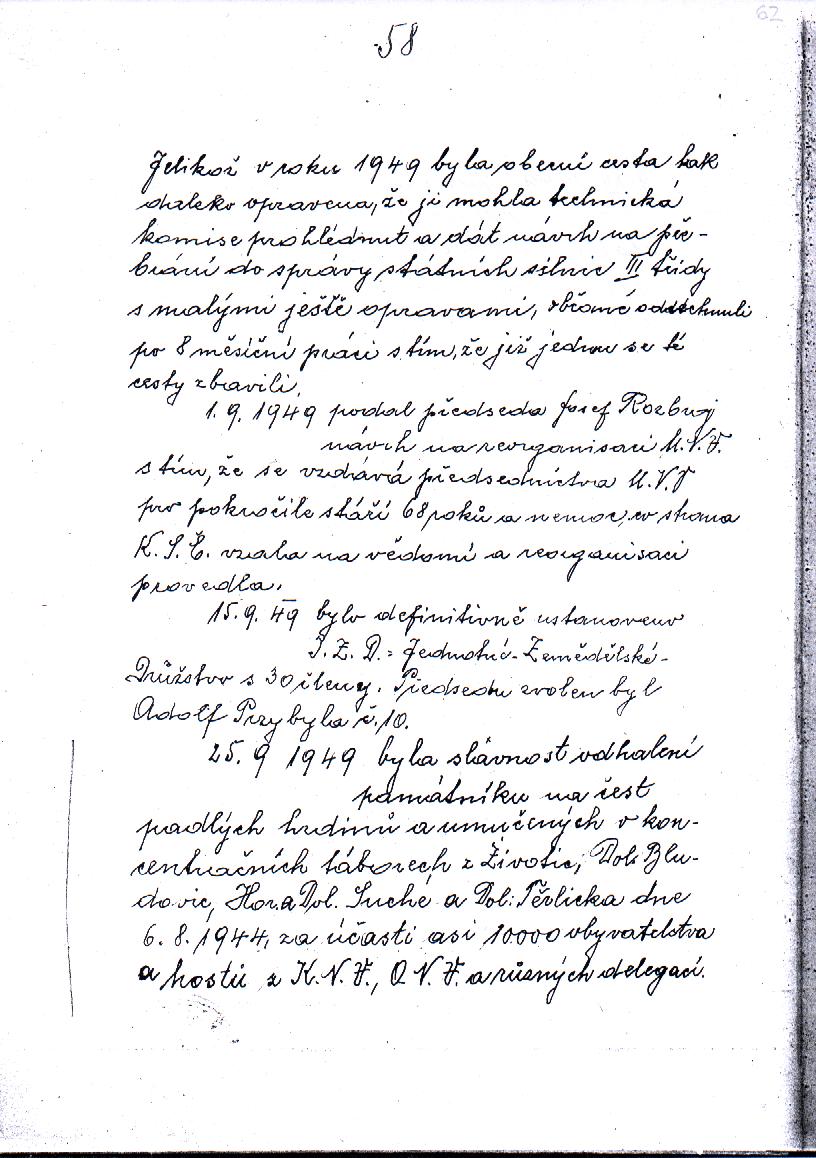 62
58
Jelikož v roku 1949 byla obecní cesta tak
daleko opravena, že ji mohla technická
komise prohlédnut a dát návrh na pře-
brání do správy státních silnic III třídy
s malými ještě opravami, občané oddechnuli
po 8 měsíční práci s tím, že již jednou se té
cesty zbavili.
1. 9. 1949 podal předseda Josef Rozbroj
návrh na reorganisaci M.N.V.
s tím, že se vzdává předsednictva M.N.V
pro pokročilé stáří 68 roků a nemoc, co strana
K.S.Č. vzala na vědomí a reorganisaci
provedla.
15. 9. 49 bylo definitivně ustanoveno
J.Z.D. = Jednotné-Zemědělské-
Družstvo s 30 členy. Předsedou zvolen byl
Adolf Przybyla č. 10.
25. 9 1949 byla slávnost odhalení
památníku na čest
padlých hrdinů a umučených v kon-
centračních táborech z Životic, Dol. Blu-
dovic, Hor. a Dol. Suché a Dol: Těrlicka dne
6. 8. 1944, za účasti asi 10000 obyvatelstva
a hostů z K.N.V., O.N.V. a různých delegací.